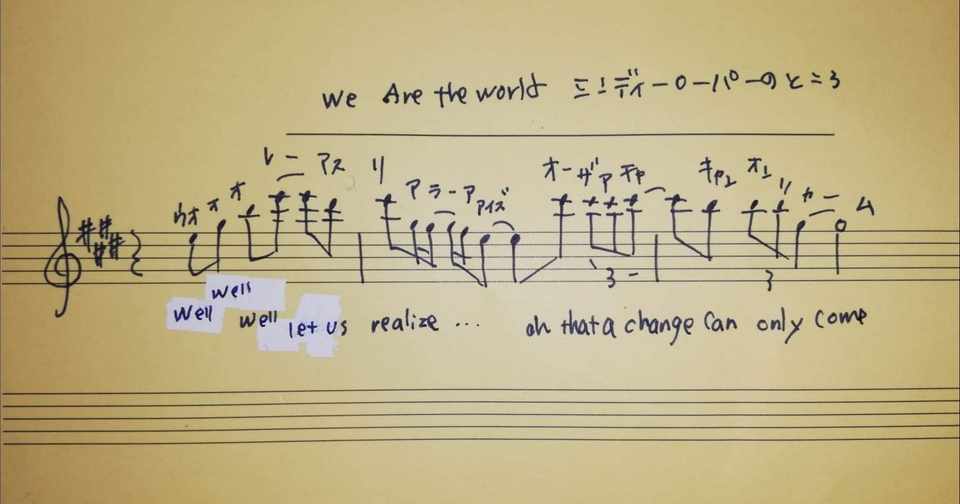 We Are the world シンディーローパーのところ
レー アス リ オーザァ チャー チャン オン リ カー ム
ウォ オ オ アラーア アイズ
3 3
well
well well let us realize ... oh that a change can only come